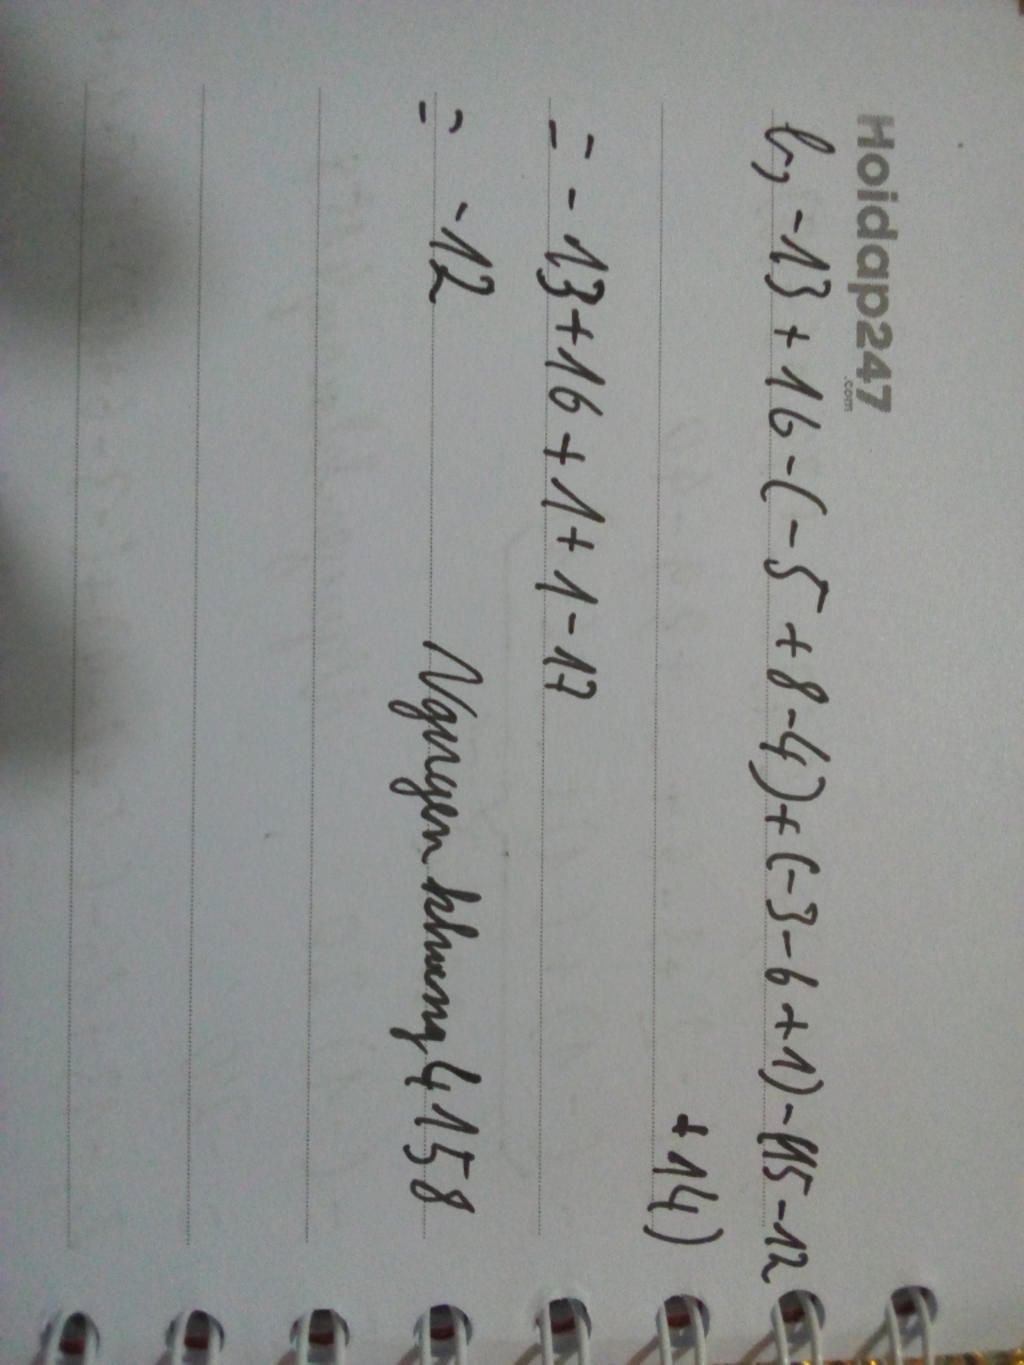 Hoidap247
.com
b, -13 + 16 - (-5 + 8 - 4) + (-3 - 6 + 1) - (15 - 12
+ 14)
= -13 + 16 + 1 + 1 - 17
= -12
Nguyen khueng 4158